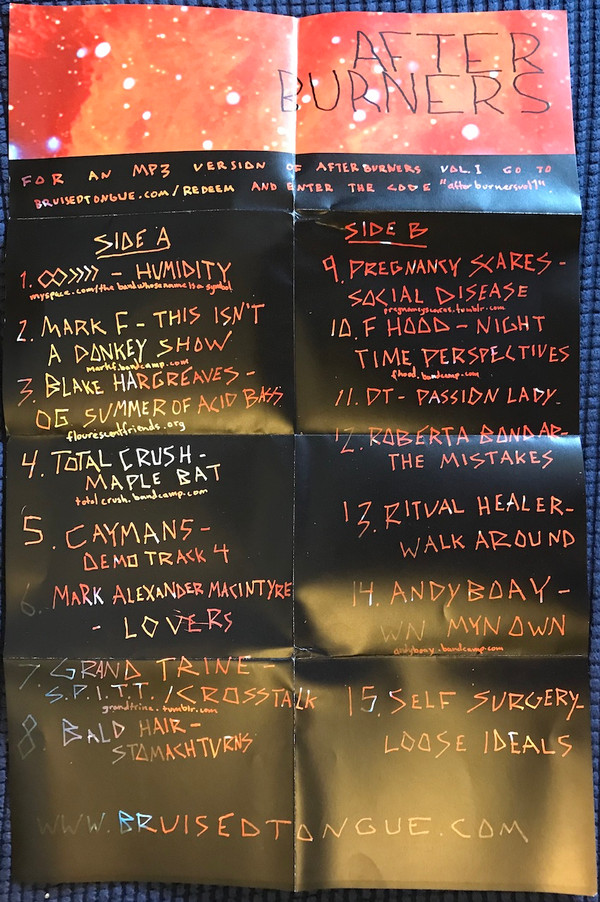 AFTER
BURNERS
FOR AN MP3 VERSION OF AFTERBURNERS VOL.1 GO TO
BRUISEDTONGUE.COM/REDEEM AND ENTER THE CODE "afterburnersvol1".
SIDE A
1. ◇◇>>>> - HUMIDITY
myspace.com/the band whose name is a symbol
2. MARK F - THIS ISN'T
A DONKEY SHOW
markf.bandcamp.com
3. BLAKE HARGREAVES -
OG SUMMER OF ACID BASS
flourescentfriends.org
4. TOTAL CRUSH -
MAPLE BAT
total crush.bandcamp.com
5. CAYMANS -
DEMO TRACK 4
6. MARK ALEXANDER MACINTYRE
- LOVERS
7. GRAND TRINE -
S.P.I.T.T./CROSSTALK
grandtrine.tumblr.com
8. BALD HAIR -
STOMACHTURNS
SIDE B
9. PREGNANCY SCARES -
SOCIAL DISEASE
pregnancyscares.tumblr.com
10. F HOOD - NIGHT
TIME PERSPECTIVES
fhood.bandcamp.com
11. DT - PASSION LADY
12. ROBERTA BONDAR -
THE MISTAKES
13. RITUAL HEALER -
WALK AROUND
14. ANDY BOAY -
WN MYN OWN
andyboay.bandcamp.com
15. SELF SURGERY -
LOOSE IDEALS
WWW.BRUISEDTONGUE.COM